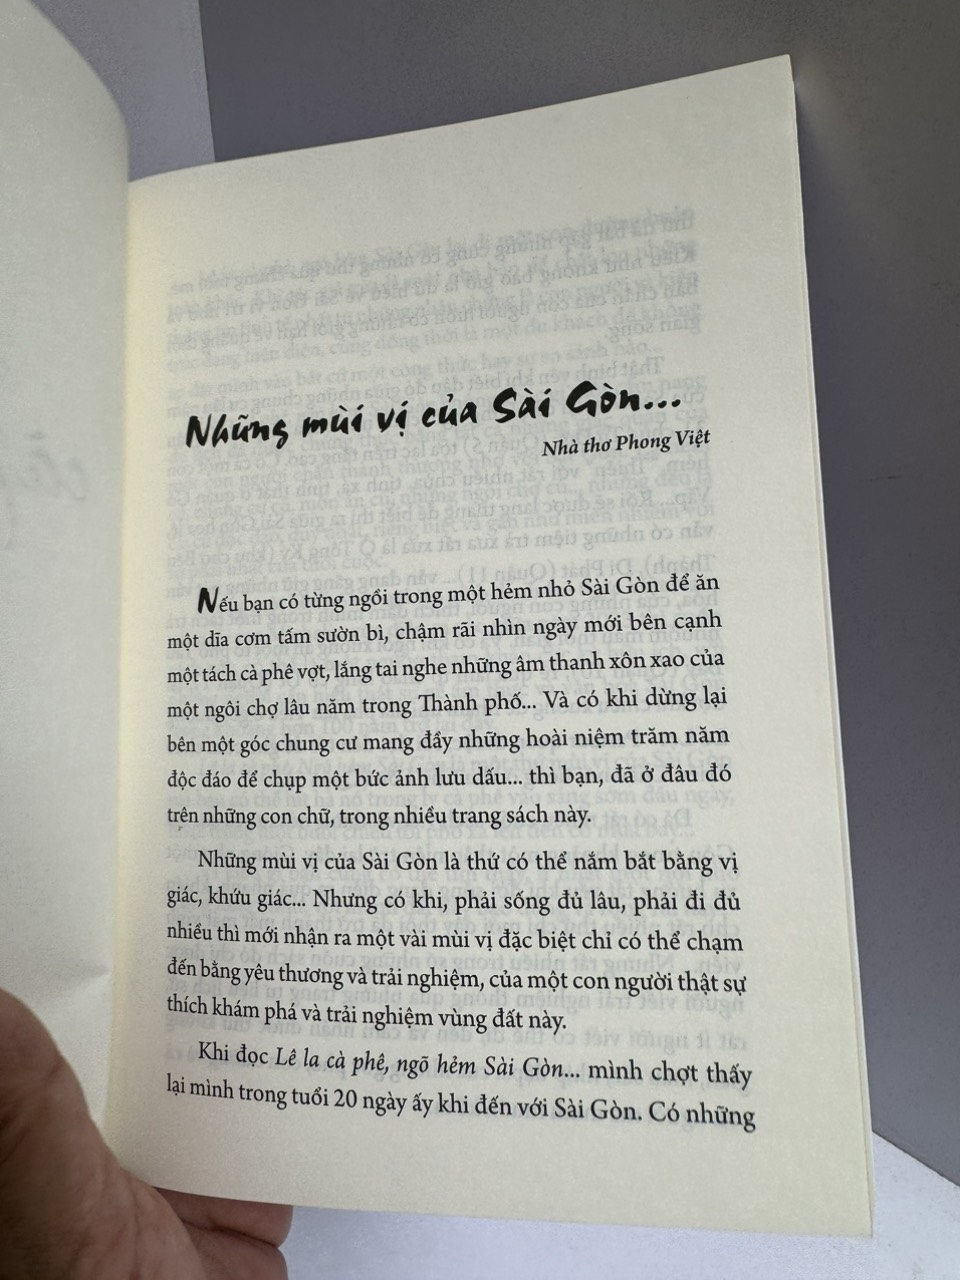 Những mùi vị của Sài Gòn...
Nhà thơ Phong Việt
Nếu bạn có từng ngồi trong một hẻm nhỏ Sài Gòn để ăn
một dĩa cơm tấm sườn bì, chậm rãi nhìn ngày mới bên cạnh
một tách cà phê vợt, lắng tai nghe những âm thanh xôn xao của
một ngôi chợ lâu năm trong Thành phố... Và có khi dừng lại
bên một góc chung cư mang đầy những hoài niệm trăm năm
độc đáo để chụp một bức ảnh lưu dấu... thì bạn, đã ở đâu đó
trên những con chữ, trong nhiều trang sách này.
Những mùi vị của Sài Gòn là thứ có thể nắm bắt bằng vị
giác, khứu giác... Nhưng có khi, phải sống đủ lâu, phải đi đủ
nhiều thì mới nhận ra một vài mùi vị đặc biệt chỉ có thể chạm
đến bằng yêu thương và trải nghiệm, của một con người thật sự
thích khám phá và trải nghiệm vùng đất này.
Khi đọc Lê la cà phê, ngõ hẻm Sài Gòn... mình chợt thấy
lại mình trong tuổi 20 ngày ấy khi đến với Sài Gòn. Có những